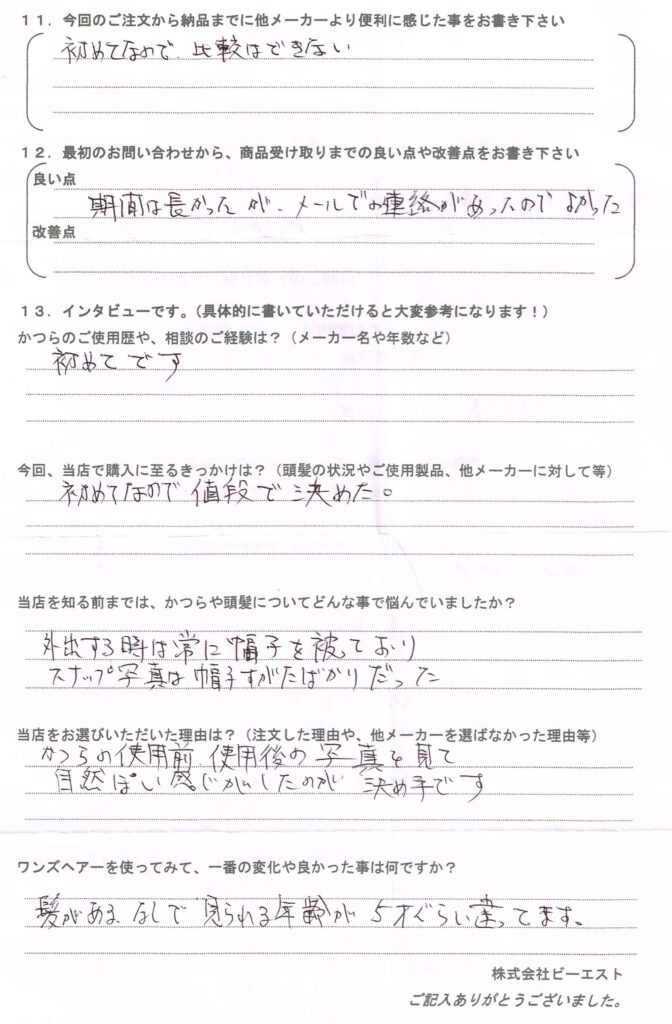 11．今回のご注文から納品までに他メーカーより便利に感じた事をお書き下さい
初めてなので、比較はできない
12．最初のお問い合わせから、商品受け取りまでの良い点や改善点をお書き下さい
良い点
期間は長かったが、メールでの連絡があったのでよかった
改善点
13．インタビューです。（具体的に書いていただけると大変参考になります！）
かつらのご使用歴や、相談のご経験は？（メーカー名や年数など）
初めてです
今回、当店で購入に至るきっかけは？（頭髪の状況やご使用製品、他メーカーに対して等）
初めてなので値段で決めた。
当店を知る前までは、かつらや頭髪についてどんな事で悩んでいましたか？
外出する時は常に帽子を被っており
スナップ写真は帽子すがたばかりだった
当店をお選びいただいた理由は？（注文した理由や、他メーカーを選ばなかった理由等）
かつらの使用前、使用後の写真を見て
自然ぽい感じがしたのが決め手です
ワンズヘアーを使ってみて、一番の変化や良かった事は何ですか？
髪がある、なしで見られる年齢が5才ぐらい違ってます。
株式会社ビーエスト
ご記入ありがとうございました。